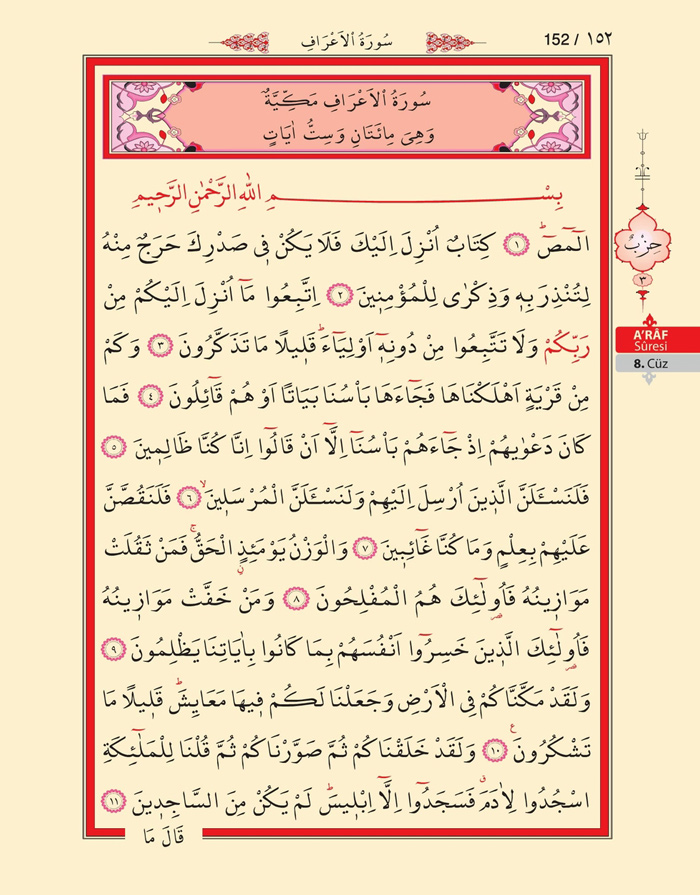 سُورَةُ الْاَعْرَافِ
152 / ١٥٢
سُورَةُ الْاَعْرَافِ مَكِّيَّةٌ
وَهِىَ مِائَتَانِ وَسِتُّ اٰيَاتٍ
بِسْمِ اللهِ الرَّحْمٰنِ الرَّحٖيمِ
الٓمٓصٓۜ ﴿١﴾ كِتَابٌ اُنْزِلَ اِلَيْكَ فَلَا يَكُنْ فٖى صَدْرِكَ حَرَجٌ مِنْهُ
لِتُنْذِرَ بِهٖ وَذِكْرٰى لِلْمُؤْمِنٖينَ ﴿٢﴾ اِتَّبِعُوا مَٓا اُنْزِلَ اِلَيْكُمْ مِنْ
رَبِّكُمْ وَلَا تَتَّبِعُوا مِنْ دُونِهٖٓ اَوْلِيَٓاءَۜ قَلٖيلًا مَا تَذَكَّرُونَ ﴿٣﴾ وَكَمْ
مِنْ قَرْيَةٍ اَهْلَكْنَاهَا فَجَٓاءَهَا بَاْسُنَا بَيَاتًا اَوْ هُمْ قَٓائِلُونَ ﴿٤﴾ فَمَا
كَانَ دَعْوٰيهُمْ اِذْ جَٓاءَهُمْ بَاْسُنَٓا اِلَّٓا اَنْ قَالُٓوا اِنَّا كُنَّا ظَالِمٖينَ ﴿٥﴾
فَلَنَسْـَٔلَنَّ الَّذٖينَ اُرْسِلَ اِلَيْهِمْ وَلَنَسْـَٔلَنَّ الْمُرْسَلٖينَۙ ﴿٦﴾ فَلَنَقُصَّنَّ
عَلَيْهِمْ بِعِلْمٍ وَمَا كُنَّا غَٓائِبٖينَ ﴿٧﴾ وَالْوَزْنُ يَوْمَئِذٍ الْحَقُّۚ فَمَنْ ثَقُلَتْ
مَوَازٖينُهُ فَاُو۬لٰٓئِكَ هُمُ الْمُفْلِحُونَ ﴿٨﴾ وَمَنْ خَفَّتْ مَوَازٖينُهُ
فَاُو۬لٰٓئِكَ الَّذٖينَ خَسِرُٓوا اَنْفُسَهُمْ بِمَا كَانُوا بِاٰيَاتِنَا يَظْلِمُونَ ﴿٩﴾
وَلَقَدْ مَكَّنَّاكُمْ فِى الْاَرْضِ وَجَعَلْنَا لَكُمْ فٖيهَا مَعَايِشَۜ قَلٖيلًا مَا
تَشْكُرُونَ ﴿١٠﴾ وَلَقَدْ خَلَقْنَاكُمْ ثُمَّ صَوَّرْنَاكُمْ ثُمَّ قُلْنَا لِلْمَلٰٓئِكَةِ
اسْجُدُوا لِاٰدَمَۗ فَسَجَدُٓوا اِلَّٓا اِبْلٖيسَۜ لَمْ يَكُنْ مِنَ السَّاجِدٖينَ ﴿١١﴾
قَالَ مَا
حِزْبٌ
٣
A'RÂF
Sûresi
8. Cüz